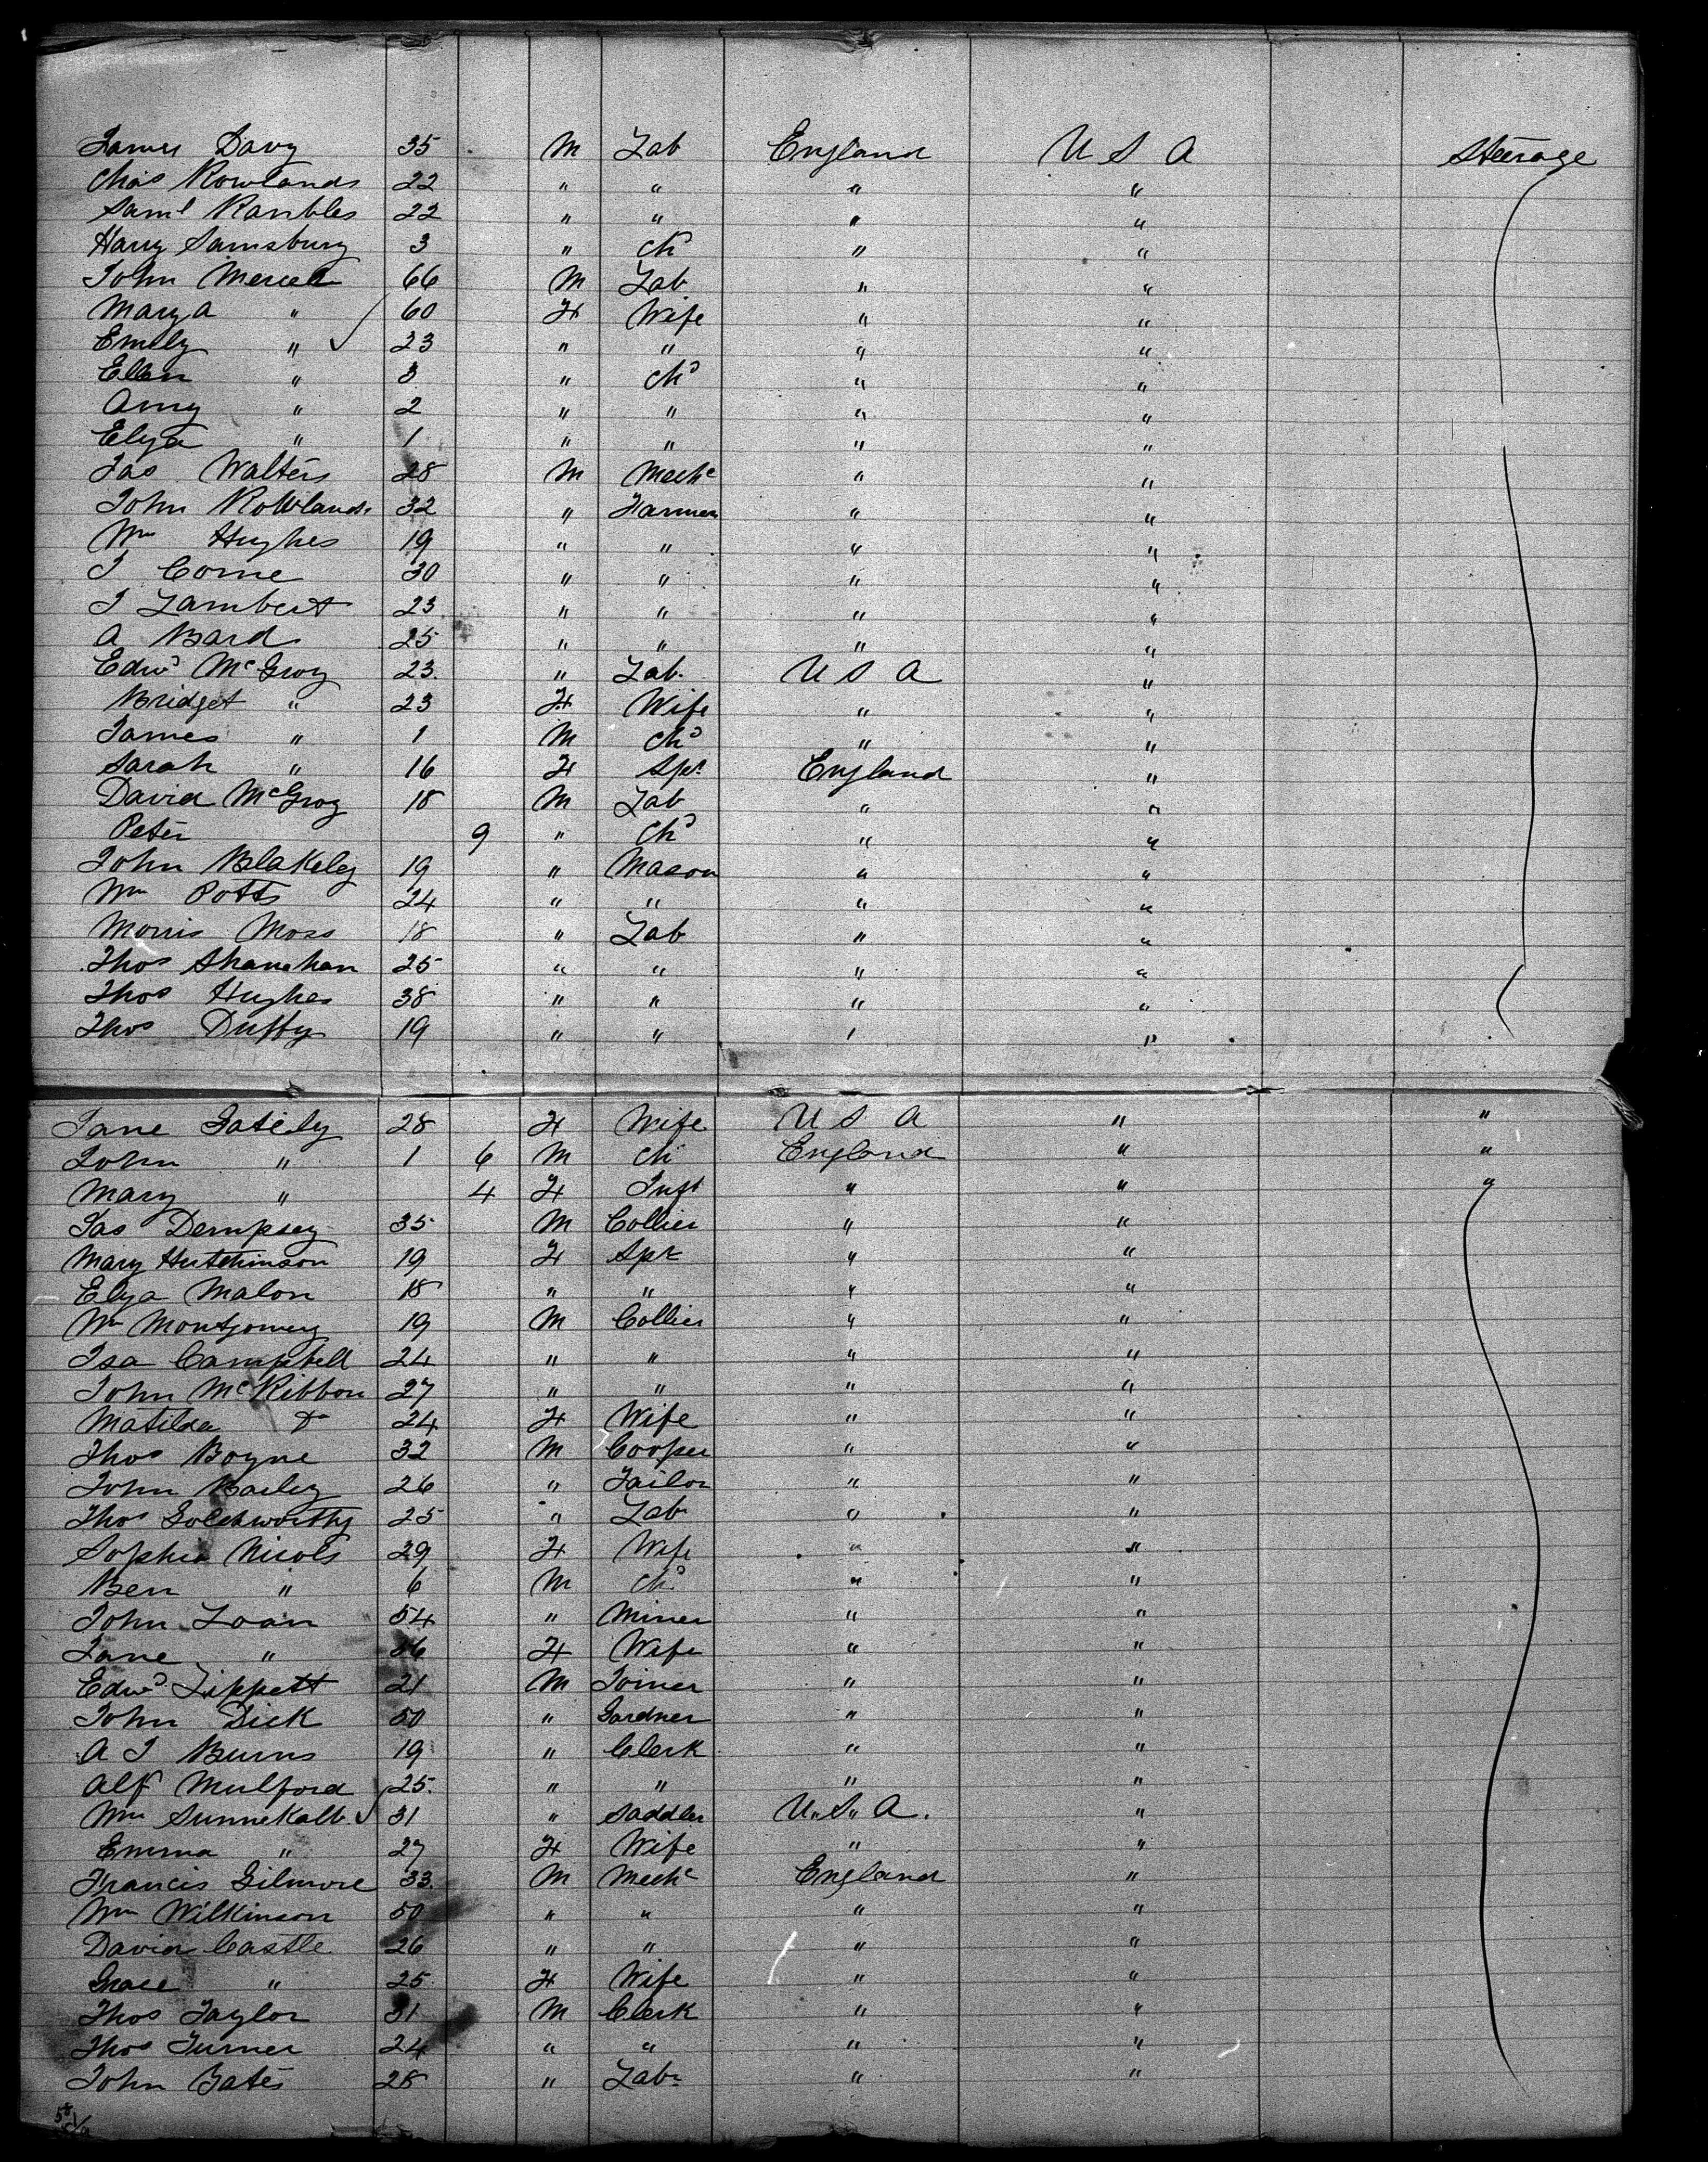 James Davy 35 M Lab England U S A Steerage
Chas Rowlands 22 " " " "
Saml Rambles 22 " " " "
Harry Samsbury 3 " Ch " "
John Mercer 66 M Lab " "
Mary A " 60 F Wife " "
Emily " 23 " " " "
Ellen " 3 " Chd " "
Amy " 2 " " " "
Elza " 1 " " " "
Jas Walters 28 M Mechc " "
John Rowlands 32 " Farmer " "
Wm Hughes 19 " " " "
J Corne 30 " " " "
J Lambert 23 " " " "
A Bard 25 " " " "
Edwd McGroy 23 " Lab. U S A "
Bridget " 23 F Wife " "
James " 1 M Chd " "
Sarah " 16 F Spr England "
David McGroy 18 M Lab " "
Peter 9 " Chd " "
John Blakeley 19 " Mason " "
Wm Potts 24 " " " "
Morris Moss 18 " Lab " "
Thos Shanahan 25 " " " "
Thos Hughes 38 " " " "
Thos Duffy 19 " " " "
Jane Gately 28 F Wife U S A " "
John " 1 6 M Ch England " "
Mary " 4 F Inft " " "
Jas Dempsey 35 M Collier " "
Mary Hutchinson 19 F Spr " "
Elza Malon 18 " " " "
Wm Montgomery 19 M Collier " "
Isa Campbell 24 " " " "
John McKibbon 27 " " " "
Matilda Do 24 F Wife " "
Thos Boyne 32 M Cooper " "
John Bailey 26 " Tailor " "
Thos Goldsworthy 25 " Lab " "
Sophia Nicols 29 F Wife " "
Ben " 6 M Chd " "
John Loan 54 " Miner " "
Jane " 36 F Wife " "
Edwd Lippett 21 M Joiner " "
John Dick 50 " Gardner " "
A J Burns 19 " Clerk " "
Alf Mulford 25 " " " "
Wm Sunnekalb 31 " Saddler U.S.A. "
Emma " 27 F Wife " "
Francis Gilmore 33 M Mechc England "
Wm Wilkinson 50 " " " "
David Castle 26 " " " "
Grace " 25 F Wife " "
Thos Taylor 31 M Clerk " "
Thos Turner 24 " " " "
John Bates 28 " Labr " "